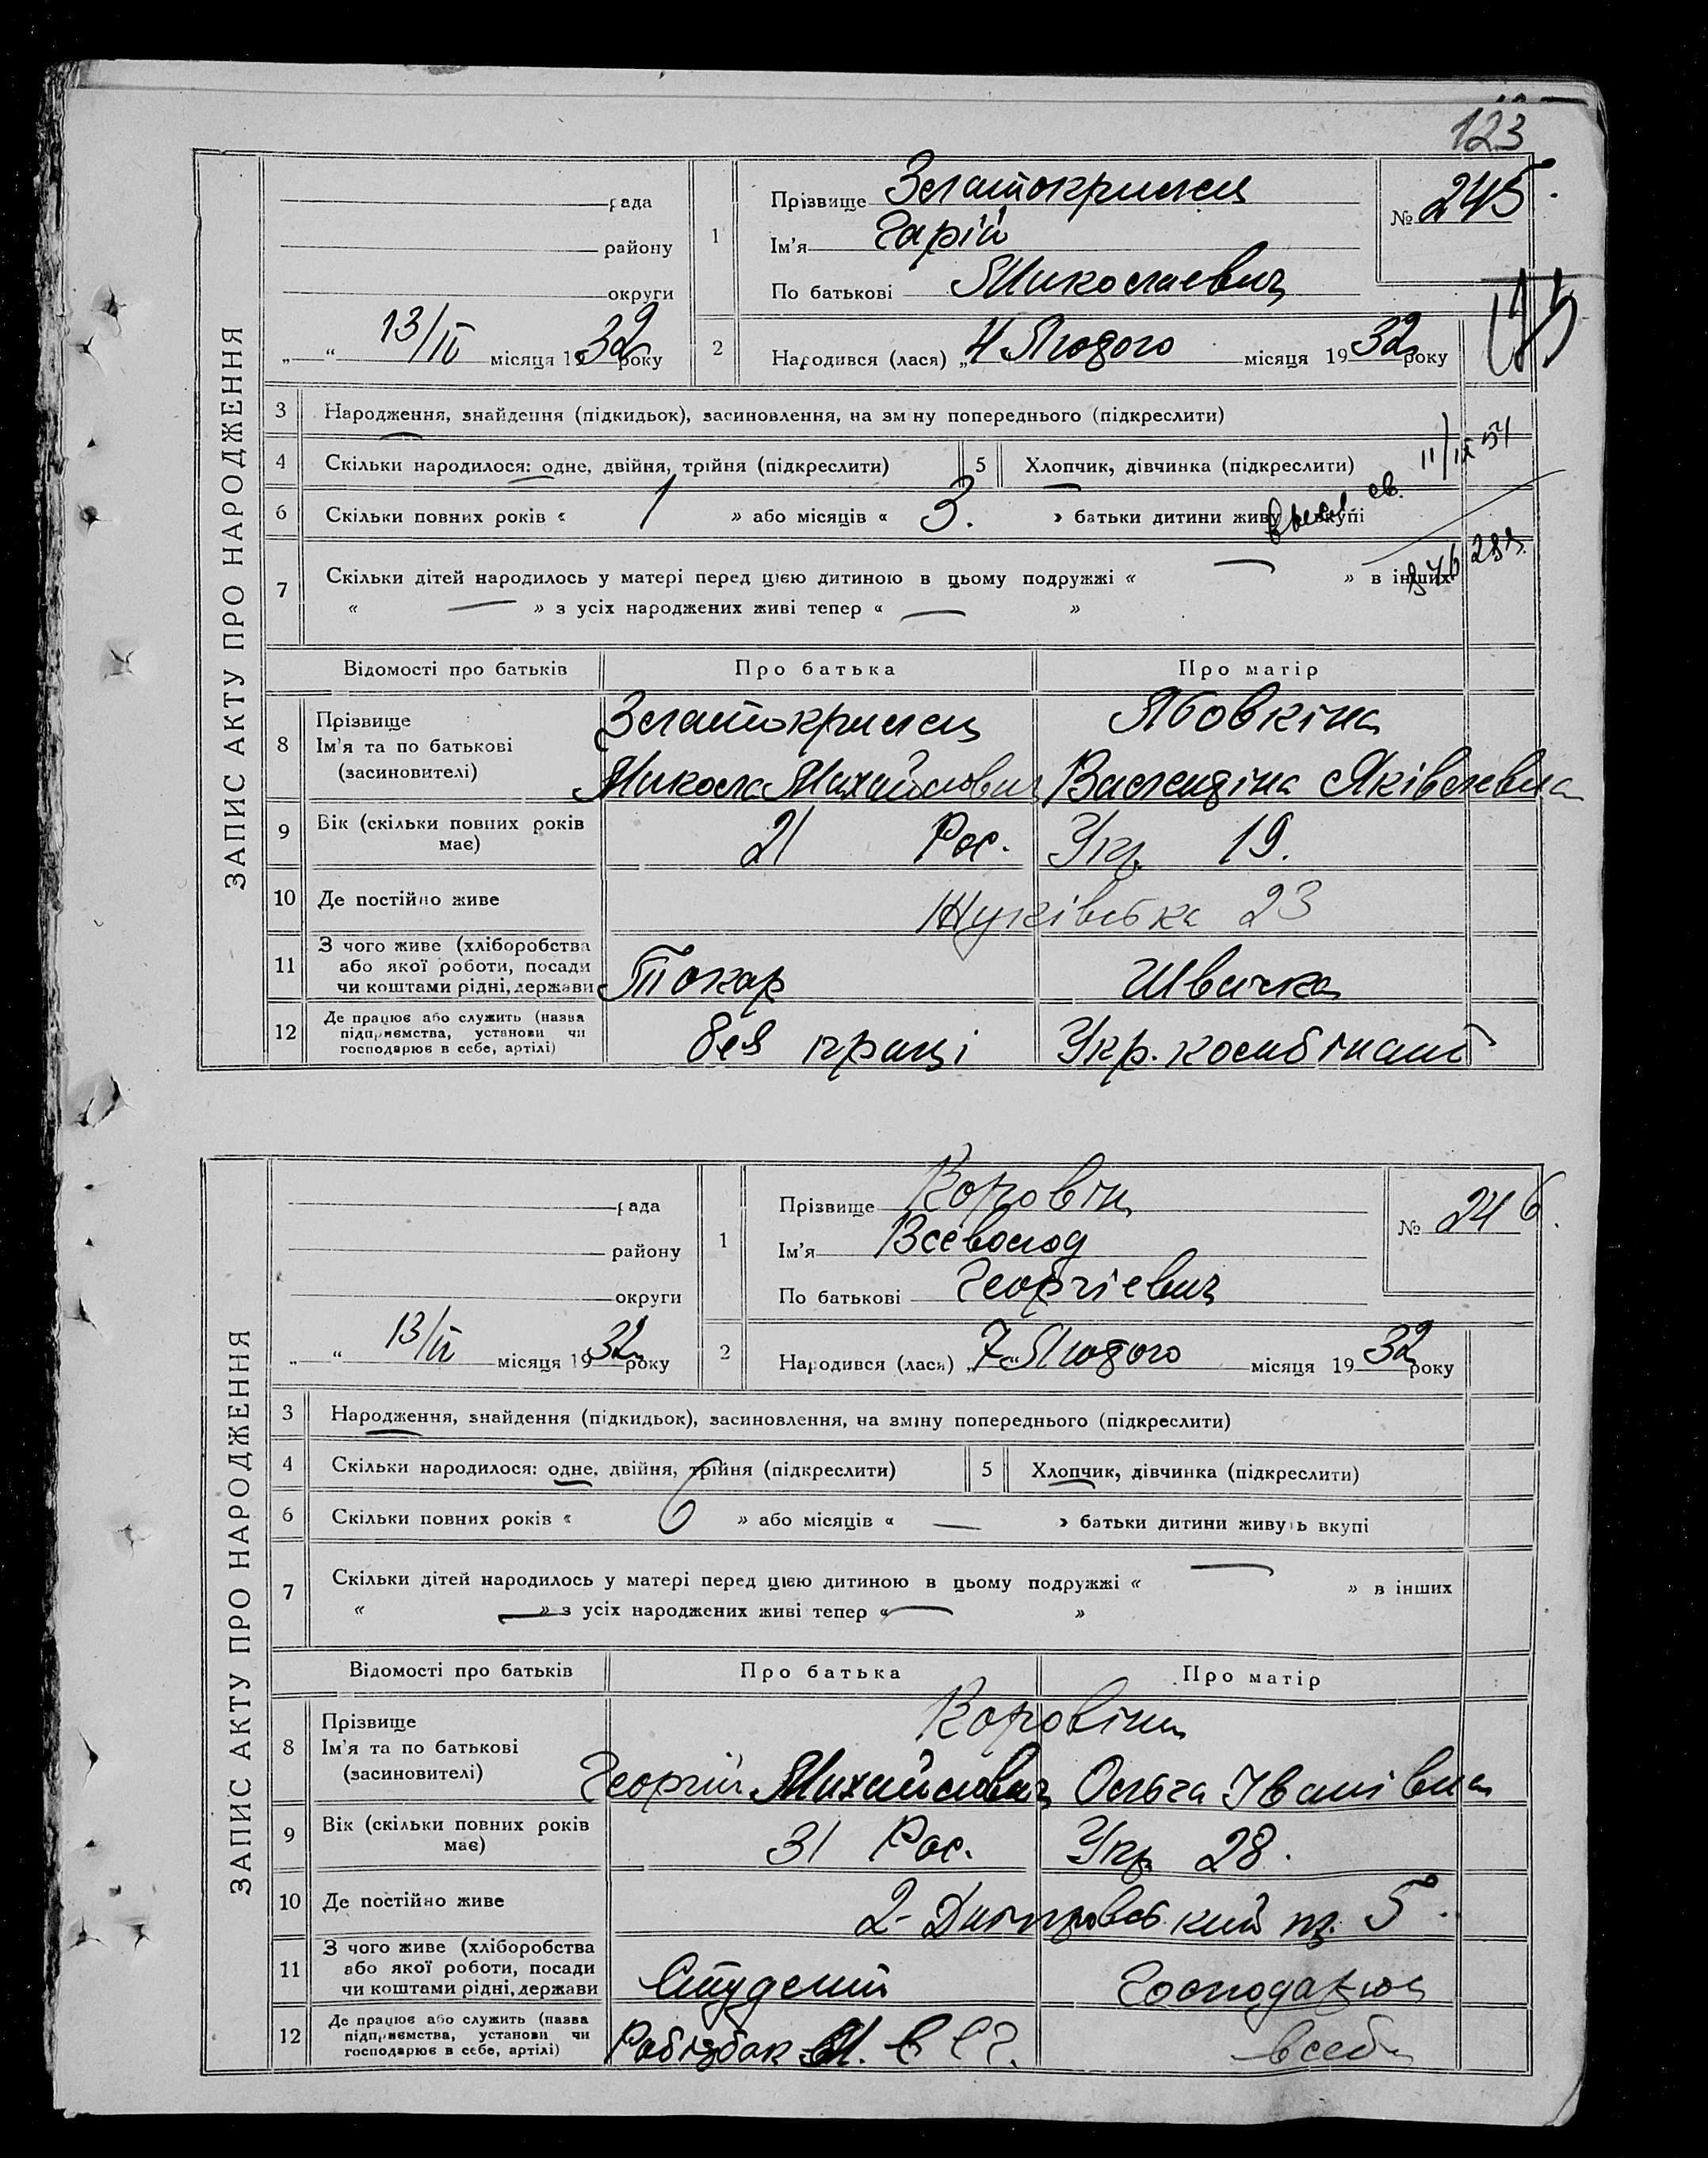 123
ЗАПИС АКТУ ПРО НАРОДЖЕННЯ
рада
району
округи
13/II місяця 1932 року
1
Прізвище Златокрилец
Ім'я Гарій
По батькові Миколаевич
№ 245.
2
Народився (лася) „4 Лютого місяця 1932 року
3 Народження, знайдення (підкидьок), засиновлення, на зм ну попереднього (підкреслити)
4 Скільки народилося: одне, двійня, трійня (підкреслити)
5 Хлопчик, дівчинка (підкреслити)
11/IX 51
6 Скільки повних років « 1 » або місяців « 3. » батьки дитини живу вкупі
св.
7 Скільки дітей народилось у матері перед цією дитиною в цьому подружжі « — » в інших
« — » з усіх народжених живі тепер « — »
Відомості про батьків
Про батька
Про матір
8 Прізвище
Ім'я та по батькові
(засиновителі)
Златокрилец
Микола Михайлович
Ябовкіна
Валендіна Яківлевна
9 Вік (скільки повних років має)
21 Рос.
Укр. 19.
10 Де постійно живе
23
11 З чого живе (хліборобства
або якої роботи, посади
чи коштами рідні, держави
Токар
Швачка
12 Де працює або служить (назва
підприємства, установи чи
господарює в себе, артілі)
без праці
Укр. комбінат
ЗАПИС АКТУ ПРО НАРОДЖЕННЯ
рада
району
округи
13/II місяця 1932 року
1
Прізвище Коровін
Ім'я Всеволод
По батькові Георгіевич
№ 246.
2
Народився (лася) „7" Лютого місяця 1932 року
3 Народження, знайдення (підкидьок), засиновлення, на зміну попереднього (підкреслити)
4 Скільки народилося: одне, двійня, трійня (підкреслити)
5 Хлопчик, дівчинка (підкреслити)
6 Скільки повних років « 6 » або місяців « — » батьки дитини живу ь вкупі
7 Скільки дітей народилось у матері перед цією дитиною в цьому подружжі « — » в інших
« — » з усіх народжених живі тепер « — »
Відомості про батьків
Про батька
Про матір
8 Прізвище
Ім'я та по батькові
(засиновителі)
Коровіни
Георгій Михайлович
Ольга Іванівна
9 Вік (скільки повних років має)
31 Рос.
Укр. 28.
10 Де постійно живе
2- пр. 5.
11 З чого живе (хліборобства
або якої роботи, посади
чи коштами рідні, держави
Студент
Господарює
12 Де працює або служить (назва
підприємства, установи чи
господарює в себе, артілі)
в себе